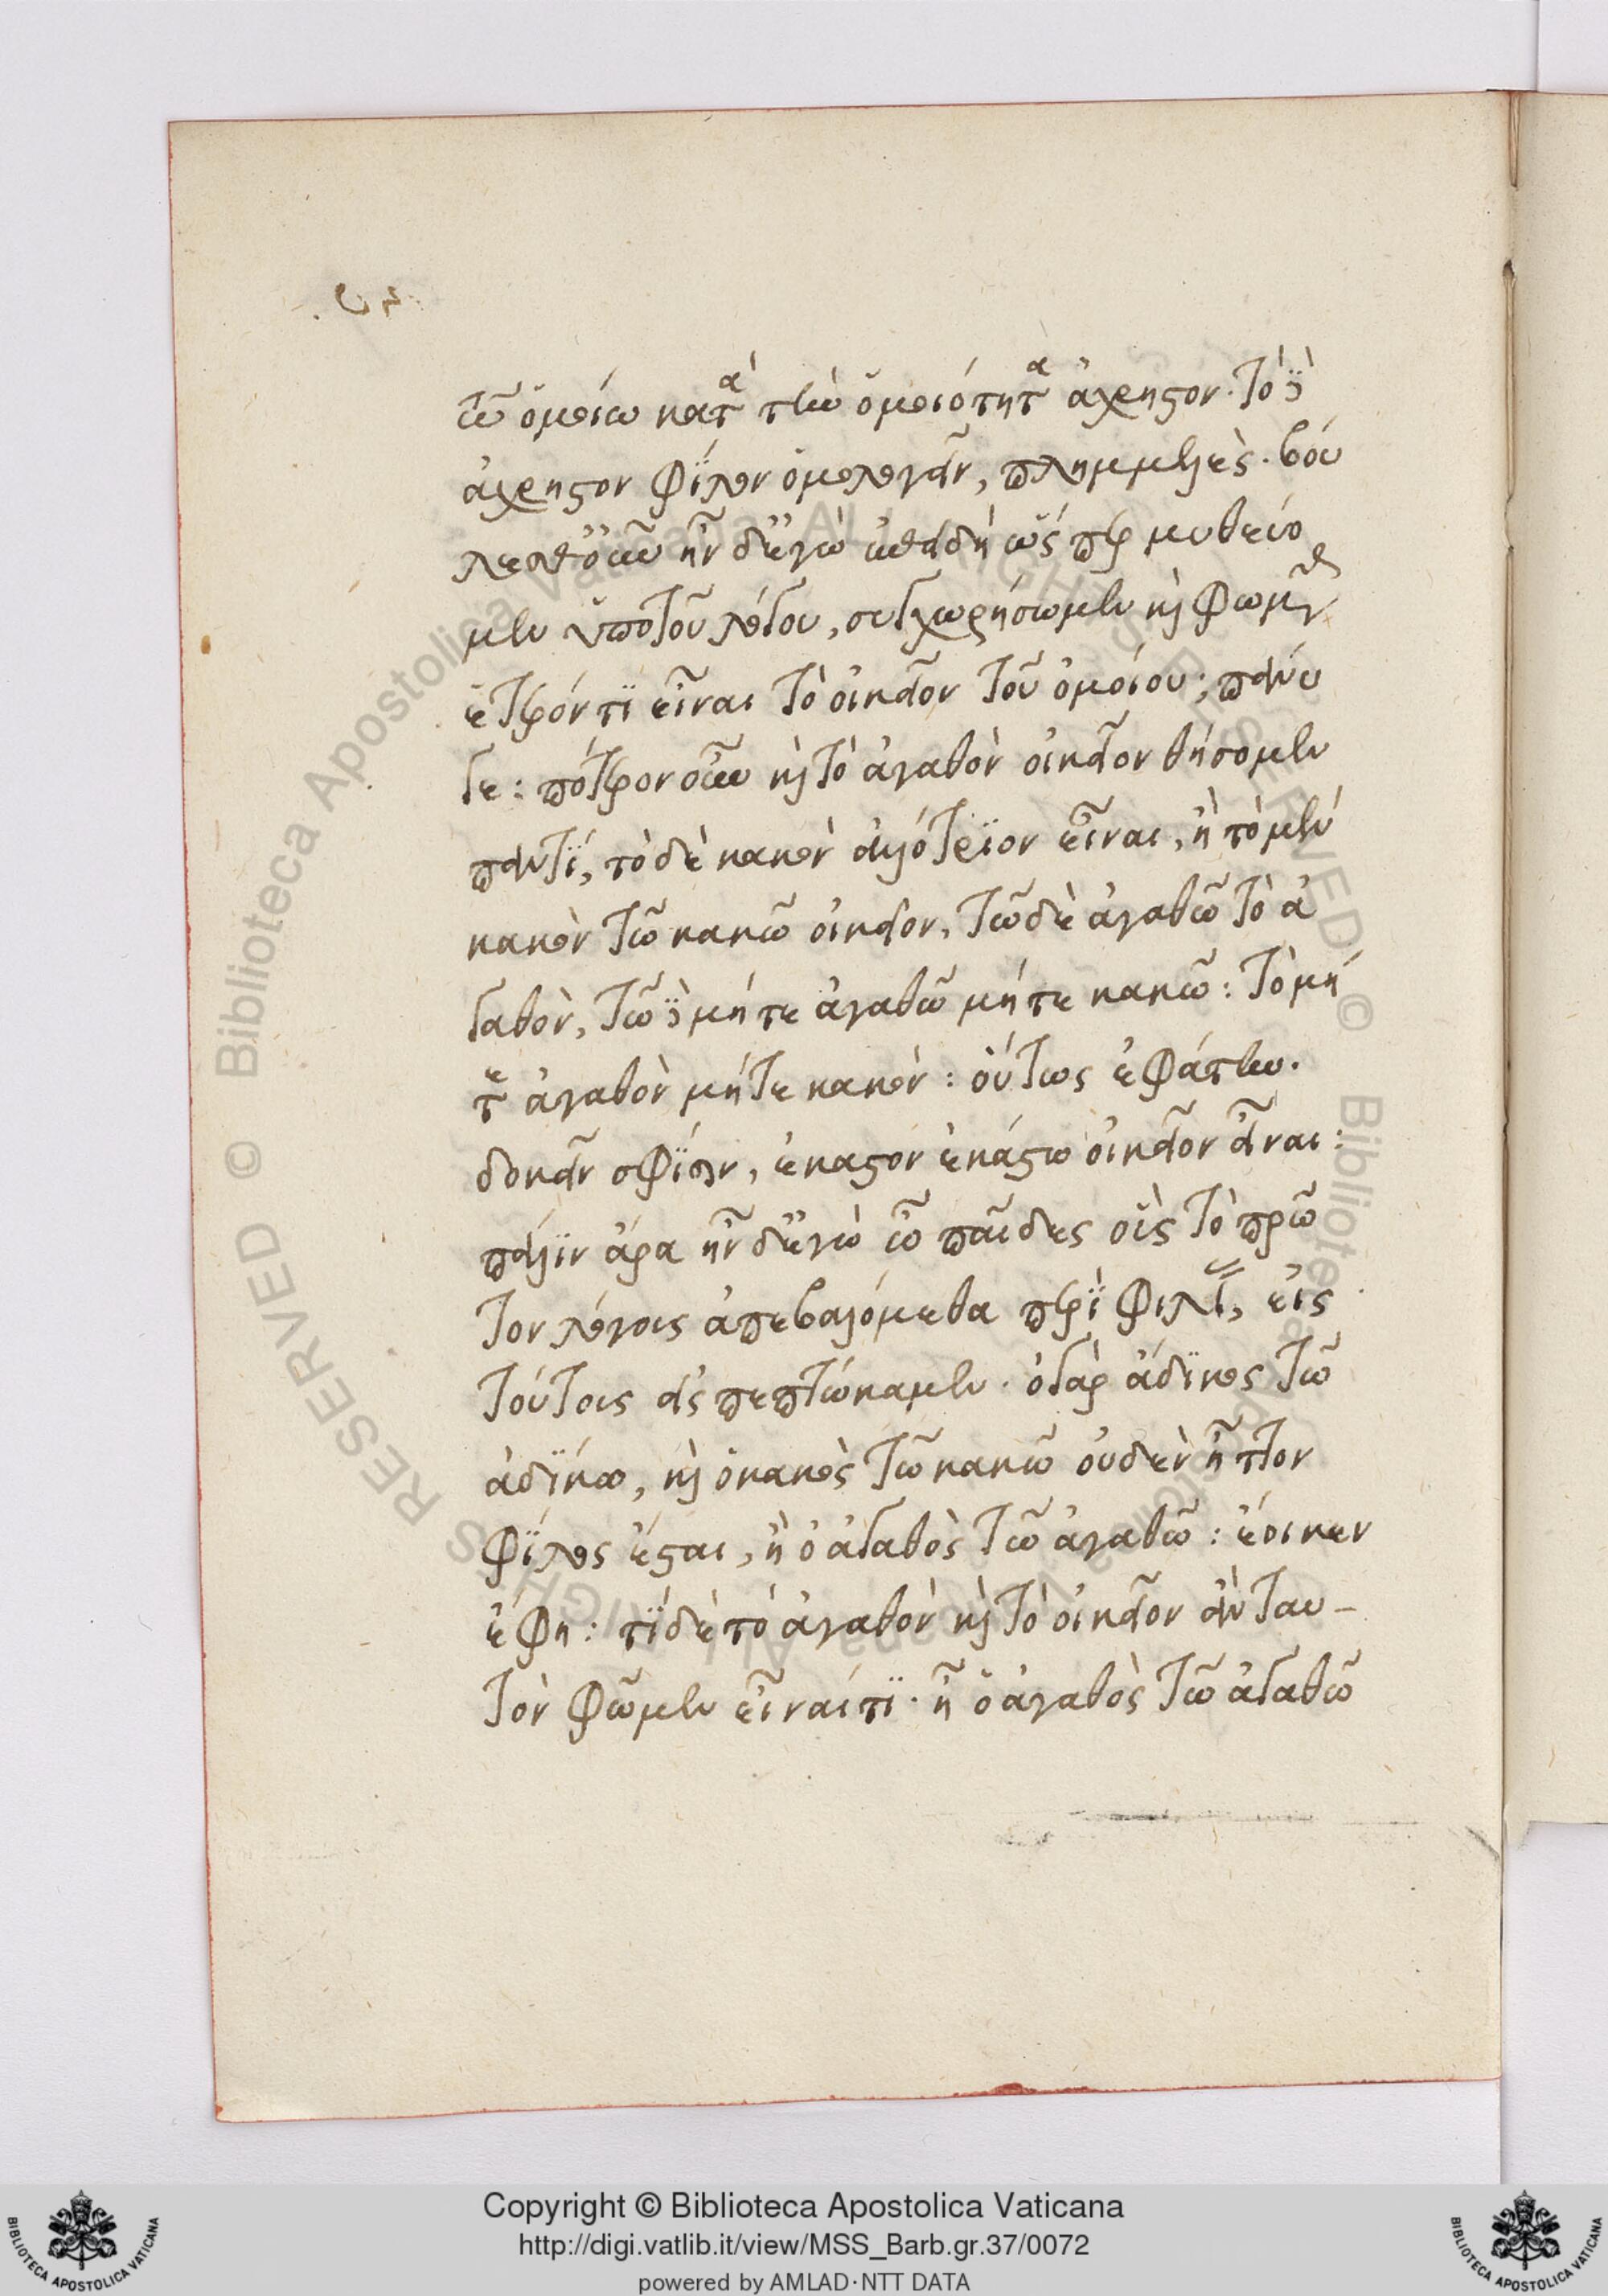 τῶ ὁμοίω κατὰ τὴν ὁμοιότητα ἄχρηστον· τὸ δὲ
ἄχρηστον φίλον ὁμολογεῖν, πλημμελὲς· βού
λεσθ' οὖν ἦν δ' ἐγὼ ἐπειδὴ ὥσπερ μεθύο
μεν ὑπὸ τοῦ λόγου, συγχωρήσωμεν καὶ φῶμεν
ἕτερόν τι εἶναι τὸ οἰκεῖον τοῦ ὁμοίου; πάνυ
γε: πότερον οὖν καὶ τὸ ἀγαθὸν οἰκεῖον θήσομεν
παντί, τὸ δὲ κακὸν ἀλλότριον εἶναι, ἢ τὸ μὲν
κακὸν τῶ κακῶ οἰκεῖον, τῶ δὲ ἀγαθῶ τὸ ἀ
γαθὸν, τῶ δὲ μήτε ἀγαθῶ μήτε κακῶ: τὸ μή
τε ἀγαθὸν μήτε κακὸν: οὕτως ἐφάτην.
δοκεῖν σφίσιν, ἕκαστον ἑκάστω οἰκεῖον εἶναι:
πάλιν ἄρα ἦν δ' ἐγὼ ὦ παῖδες οὓς τὸ πρῶ
τον λόγοις ἀπεβαλόμεθα περὶ φιλίας, εἰς
τούτοις εἰσπεπτώκαμεν· ὁ γὰρ ἄδικος τῶ
ἀδίκω, καὶ ὁ κακὸς τῶ κακῶ οὐδὲν ἧττον
φίλος ἔσται, ἢ ὁ ἀγαθὸς τῶ ἀγαθῶ: ἔοικεν
ἔφη: τί δὲ τὸ ἀγαθὸν καὶ τὸ οἰκεῖον ἂν ταυ-
τὸν φῶμεν εἶναί τι· ἢ ὁ ἀγαθὸς τῶ ἀγαθῶ
© Biblioteca Apostolica Vaticana ALL RIGHTS RESERVED
Copyright © Biblioteca Apostolica Vaticana
http://digi.vatlib.it/view/MSS_Barb.gr.37/0072
powered by AMLAD·NTT DATA
BIBLIOTECA APOSTOLICA VATICANA
BIBLIOTECA APOSTOLICA VATICANA